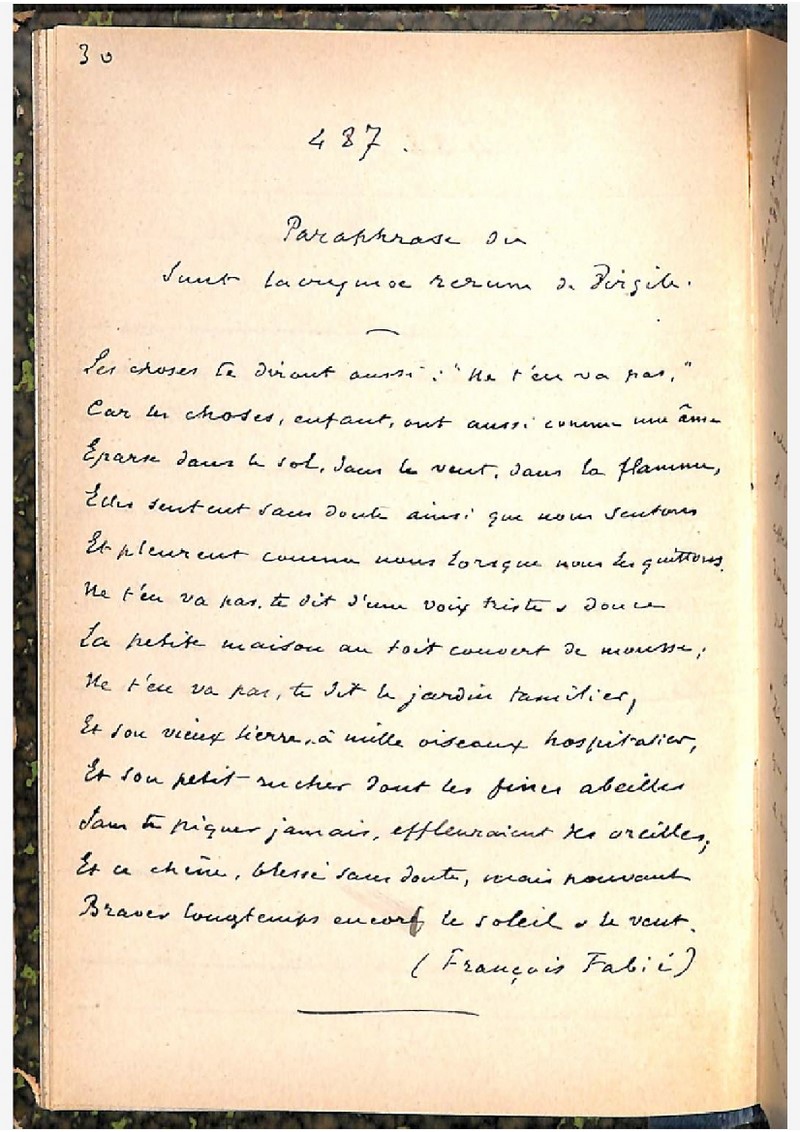 30
487.
Paraphrase du
Sunt lacrymae rerum de Virgile.
Les choses te diront aussi : "Ne t'en va pas,"
Car les choses, enfant, ont aussi comme une âme
Eparse dans le sol, dans le vent, dans la flamme,
Elles sentent sans doute ainsi que nous sentons
Et pleurent comme nous lorsque nous les quittons.
Ne t'en va pas, te dit d'une voix triste & douce
La petite maison au toit couvert de mousse ;
Ne t'en va pas, te dit le jardin familier,
Et son vieux lierre, à mille oiseaux hospitalier,
Et son petit rucher dont les fines abeilles
Sans te piquer jamais, effleuraient tes oreilles ;
Et ce chêne, blessé sans doute, mais pouvant
Braver longtemps encor le soleil & le vent.
(François Fabié)